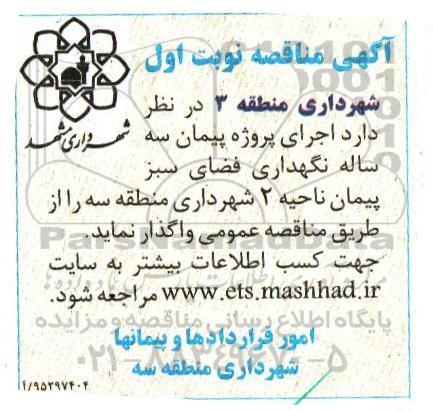 آگهی مناقصه نوبت اول
شهرداری مشهد
شهرداری منطقه ۳ در نظر
دارد اجرای پروژه پیمان سه
ساله نگهداری فضای سبز
پیمان ناحیه ۲ شهرداری منطقه سه را از
طریق مناقصه عمومی واگذار نماید.
جهت کسب اطلاعات بیشتر به سایت
www.ets.mashhad.ir مراجعه شود.
امور قراردادها و پیمانها
شهرداری منطقه سه
۱/۹۵۲۹۷۴۰۴
ParsNamadData
پایگاه اطلاع رسانی مناقصه و مزایده
۰۲۱-۸۸۳۴۹۶۷۰-۵